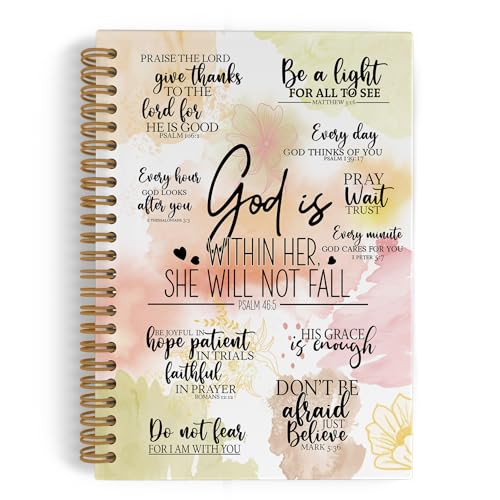 PRAISE THE LORD
give thanks
TO THE
lord for
HE IS GOOD
PSALM 106:1
Be a light
FOR ALL TO SEE
MATTHEW 5:16
Every day
GOD THINKS OF YOU
PSALM 139:17
Every hour
GOD LOOKS
after you
2 THESSALONIANS 3:3
God is
WITHIN HER,
SHE WILL NOT FALL
PSALM 46:5
PRAY
Wait
TRUST
Every minute
GOD CARES FOR YOU
1 PETER 5:7
BE JOYFUL IN
hope patient
IN TRIALS
faithful
IN PRAYER
ROMANS 12:12
HIS GRACE
is enough
Do not fear
FOR I AM WITH YOU
DON'T BE
afraid
JUST
Believe
MARK 5:36